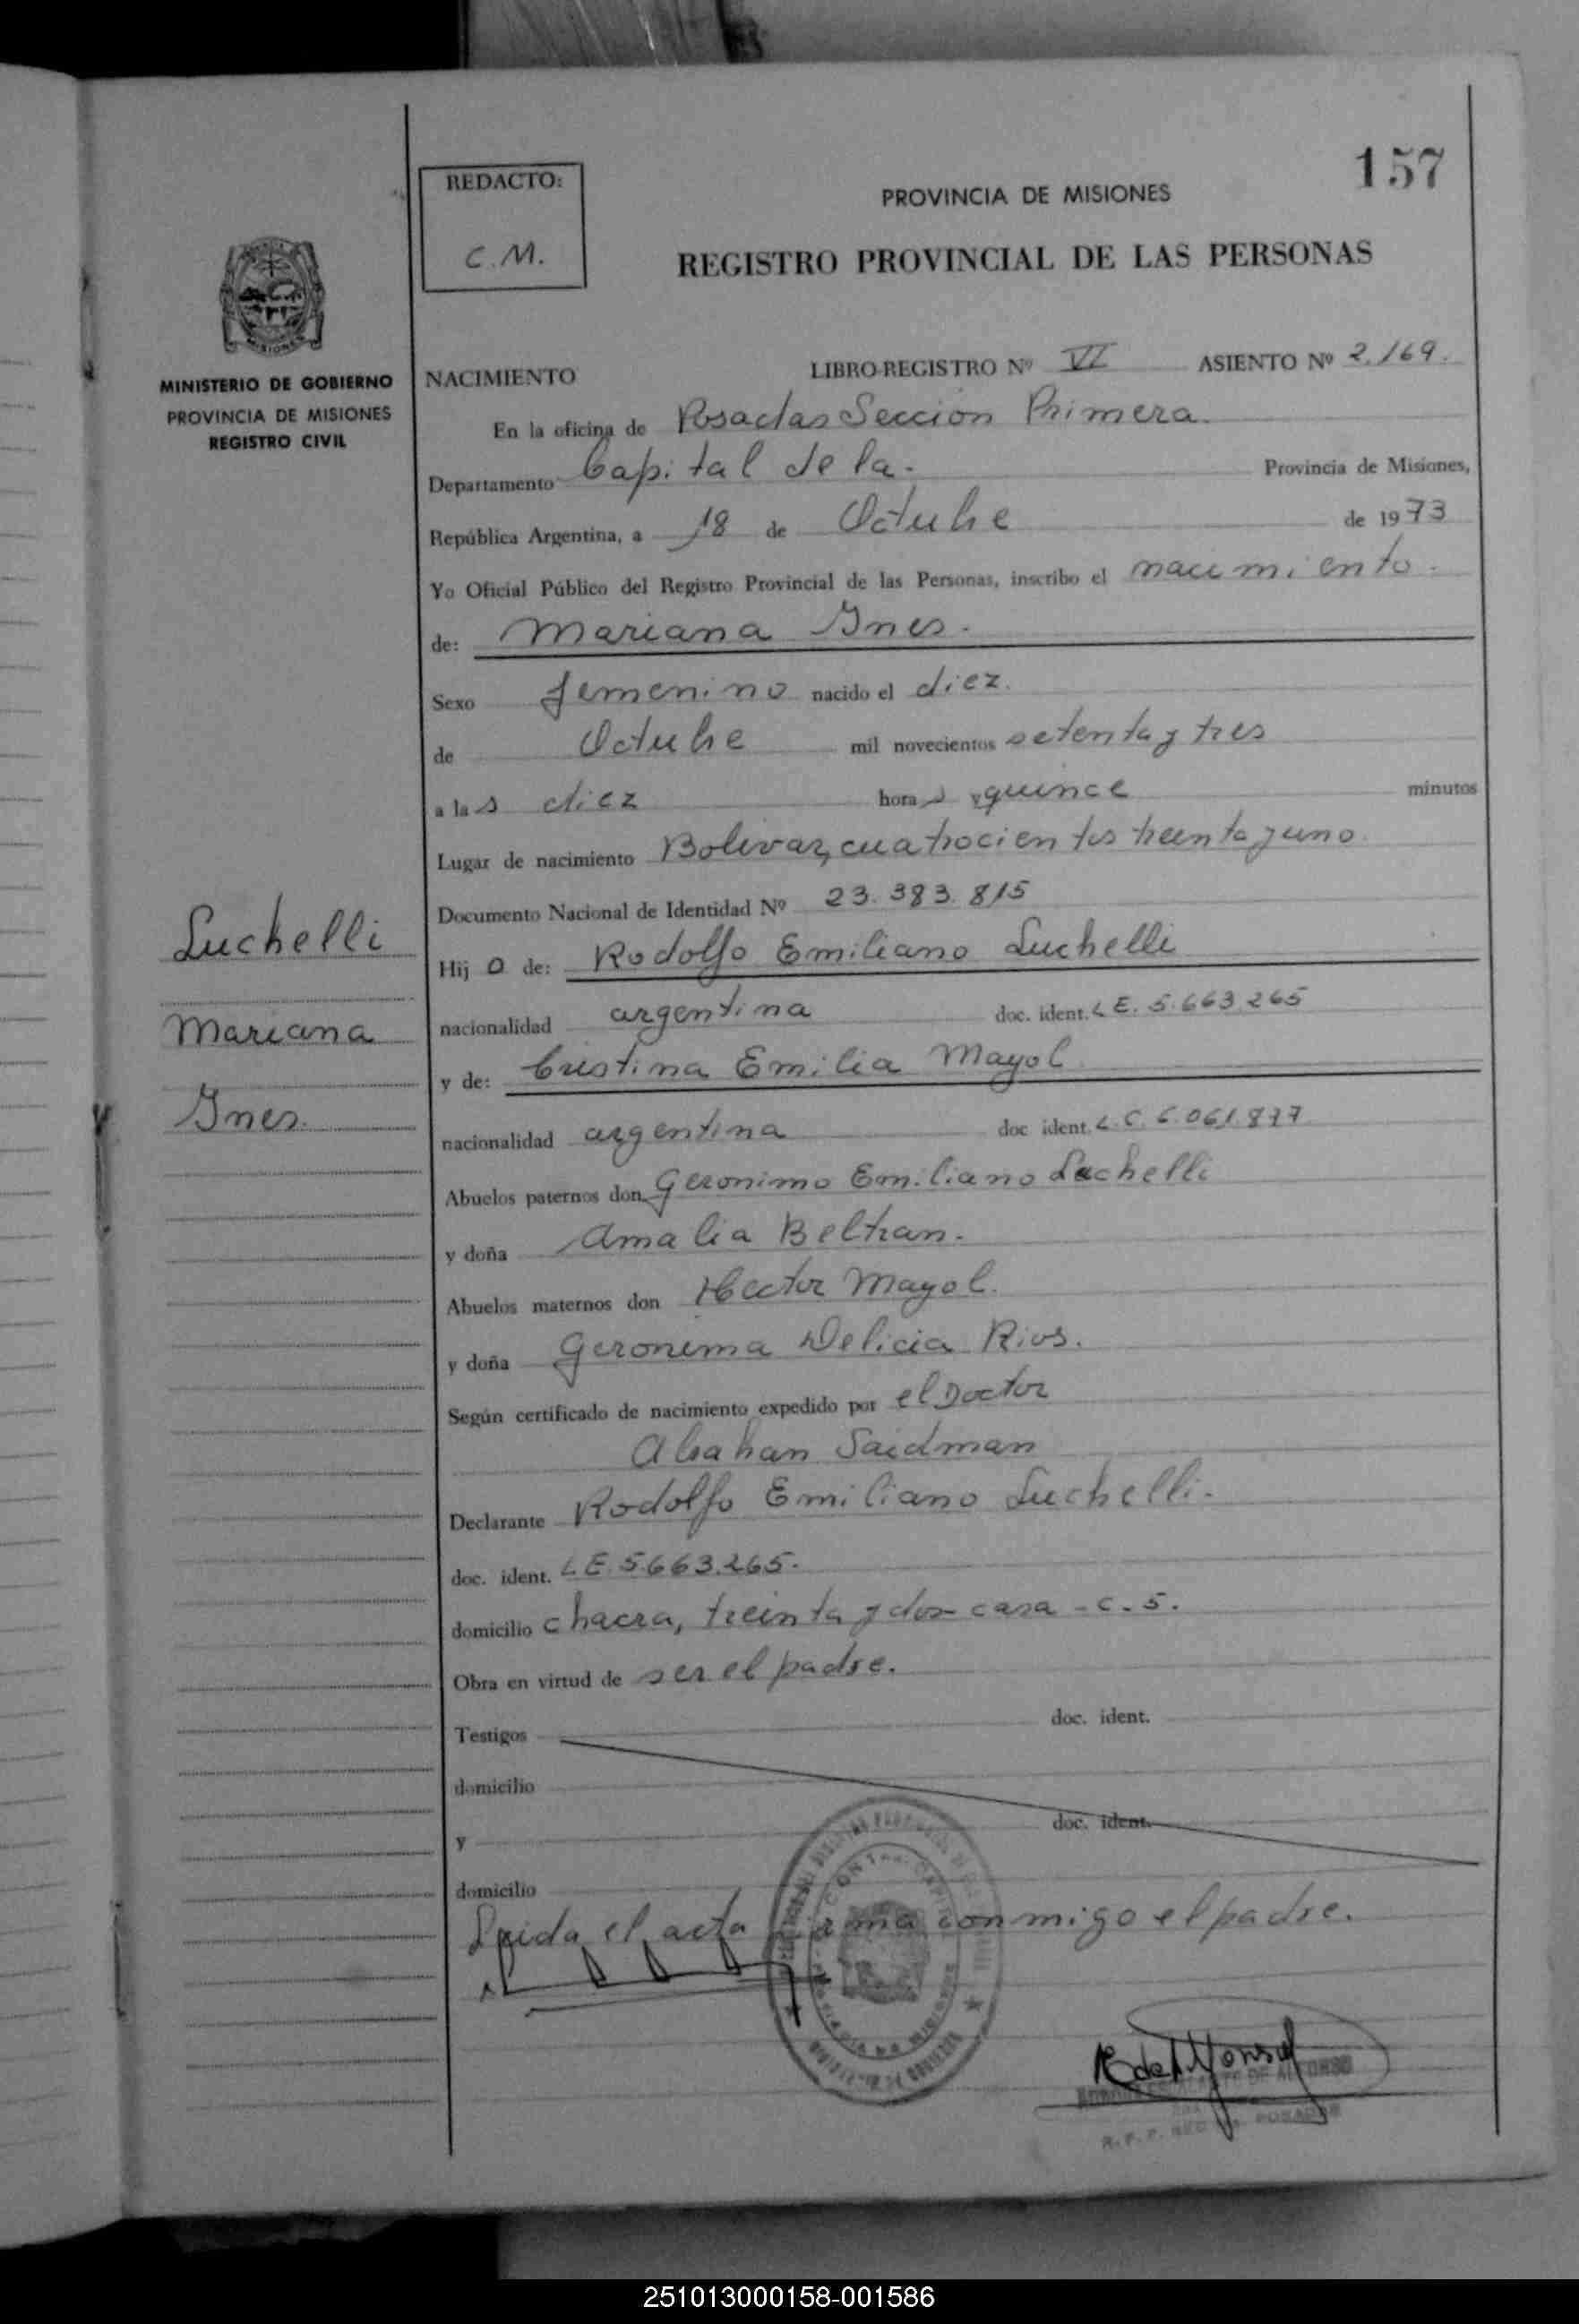 157
REDACTO:
C.M.
PROVINCIA DE MISIONES
REGISTRO PROVINCIAL DE LAS PERSONAS
MISIONES
MINISTERIO DE GOBIERNO
PROVINCIA DE MISIONES
REGISTRO CIVIL
NACIMIENTO LIBRO-REGISTRO Nº VI ASIENTO Nº 2.169.
En la oficina de Posadas Sección Primera.
Departamento Capital de la. Provincia de Misiones,
República Argentina, a 18 de Octubre de 1973
Yo Oficial Público del Registro Provincial de las Personas, inscribo el nacimiento.
de: Mariana Ines.
Sexo femenino nacido el diez.
de Octubre mil novecientos setenta y tres
a las diez horas y quince minutos
Lugar de nacimiento Bolivar, cuatrocientos treinta y uno.
Documento Nacional de Identidad Nº 23.383.815
Hijo de: Rodolfo Emiliano Luchelli
nacionalidad argentina doc. ident. L E. 5.663.265
y de: Cristina Emilia Mayol
nacionalidad argentina doc ident. L.C. 6.061.877
Abuelos paternos don Geronimo Emiliano Luchelli
y doña Amalia Beltran.
Abuelos maternos don Hector Mayol.
y doña Geronima Delicia Rios.
Según certificado de nacimiento expedido por el Doctor
Abrahan Saidman
Declarante Rodolfo Emiliano Luchelli.
doc. ident. L E. 5.663.265.
domicilio chacra, treinta y dos- casa - c. 5.
Obra en virtud de ser el padre.
Testigos doc. ident.
domicilio
y doc. ident.
domicilio
Leida el acta firma conmigo el padre.
Luchelli
Mariana
Ines.
DE ALFONSO
R. P. P. POSADAS
251013000158-001586